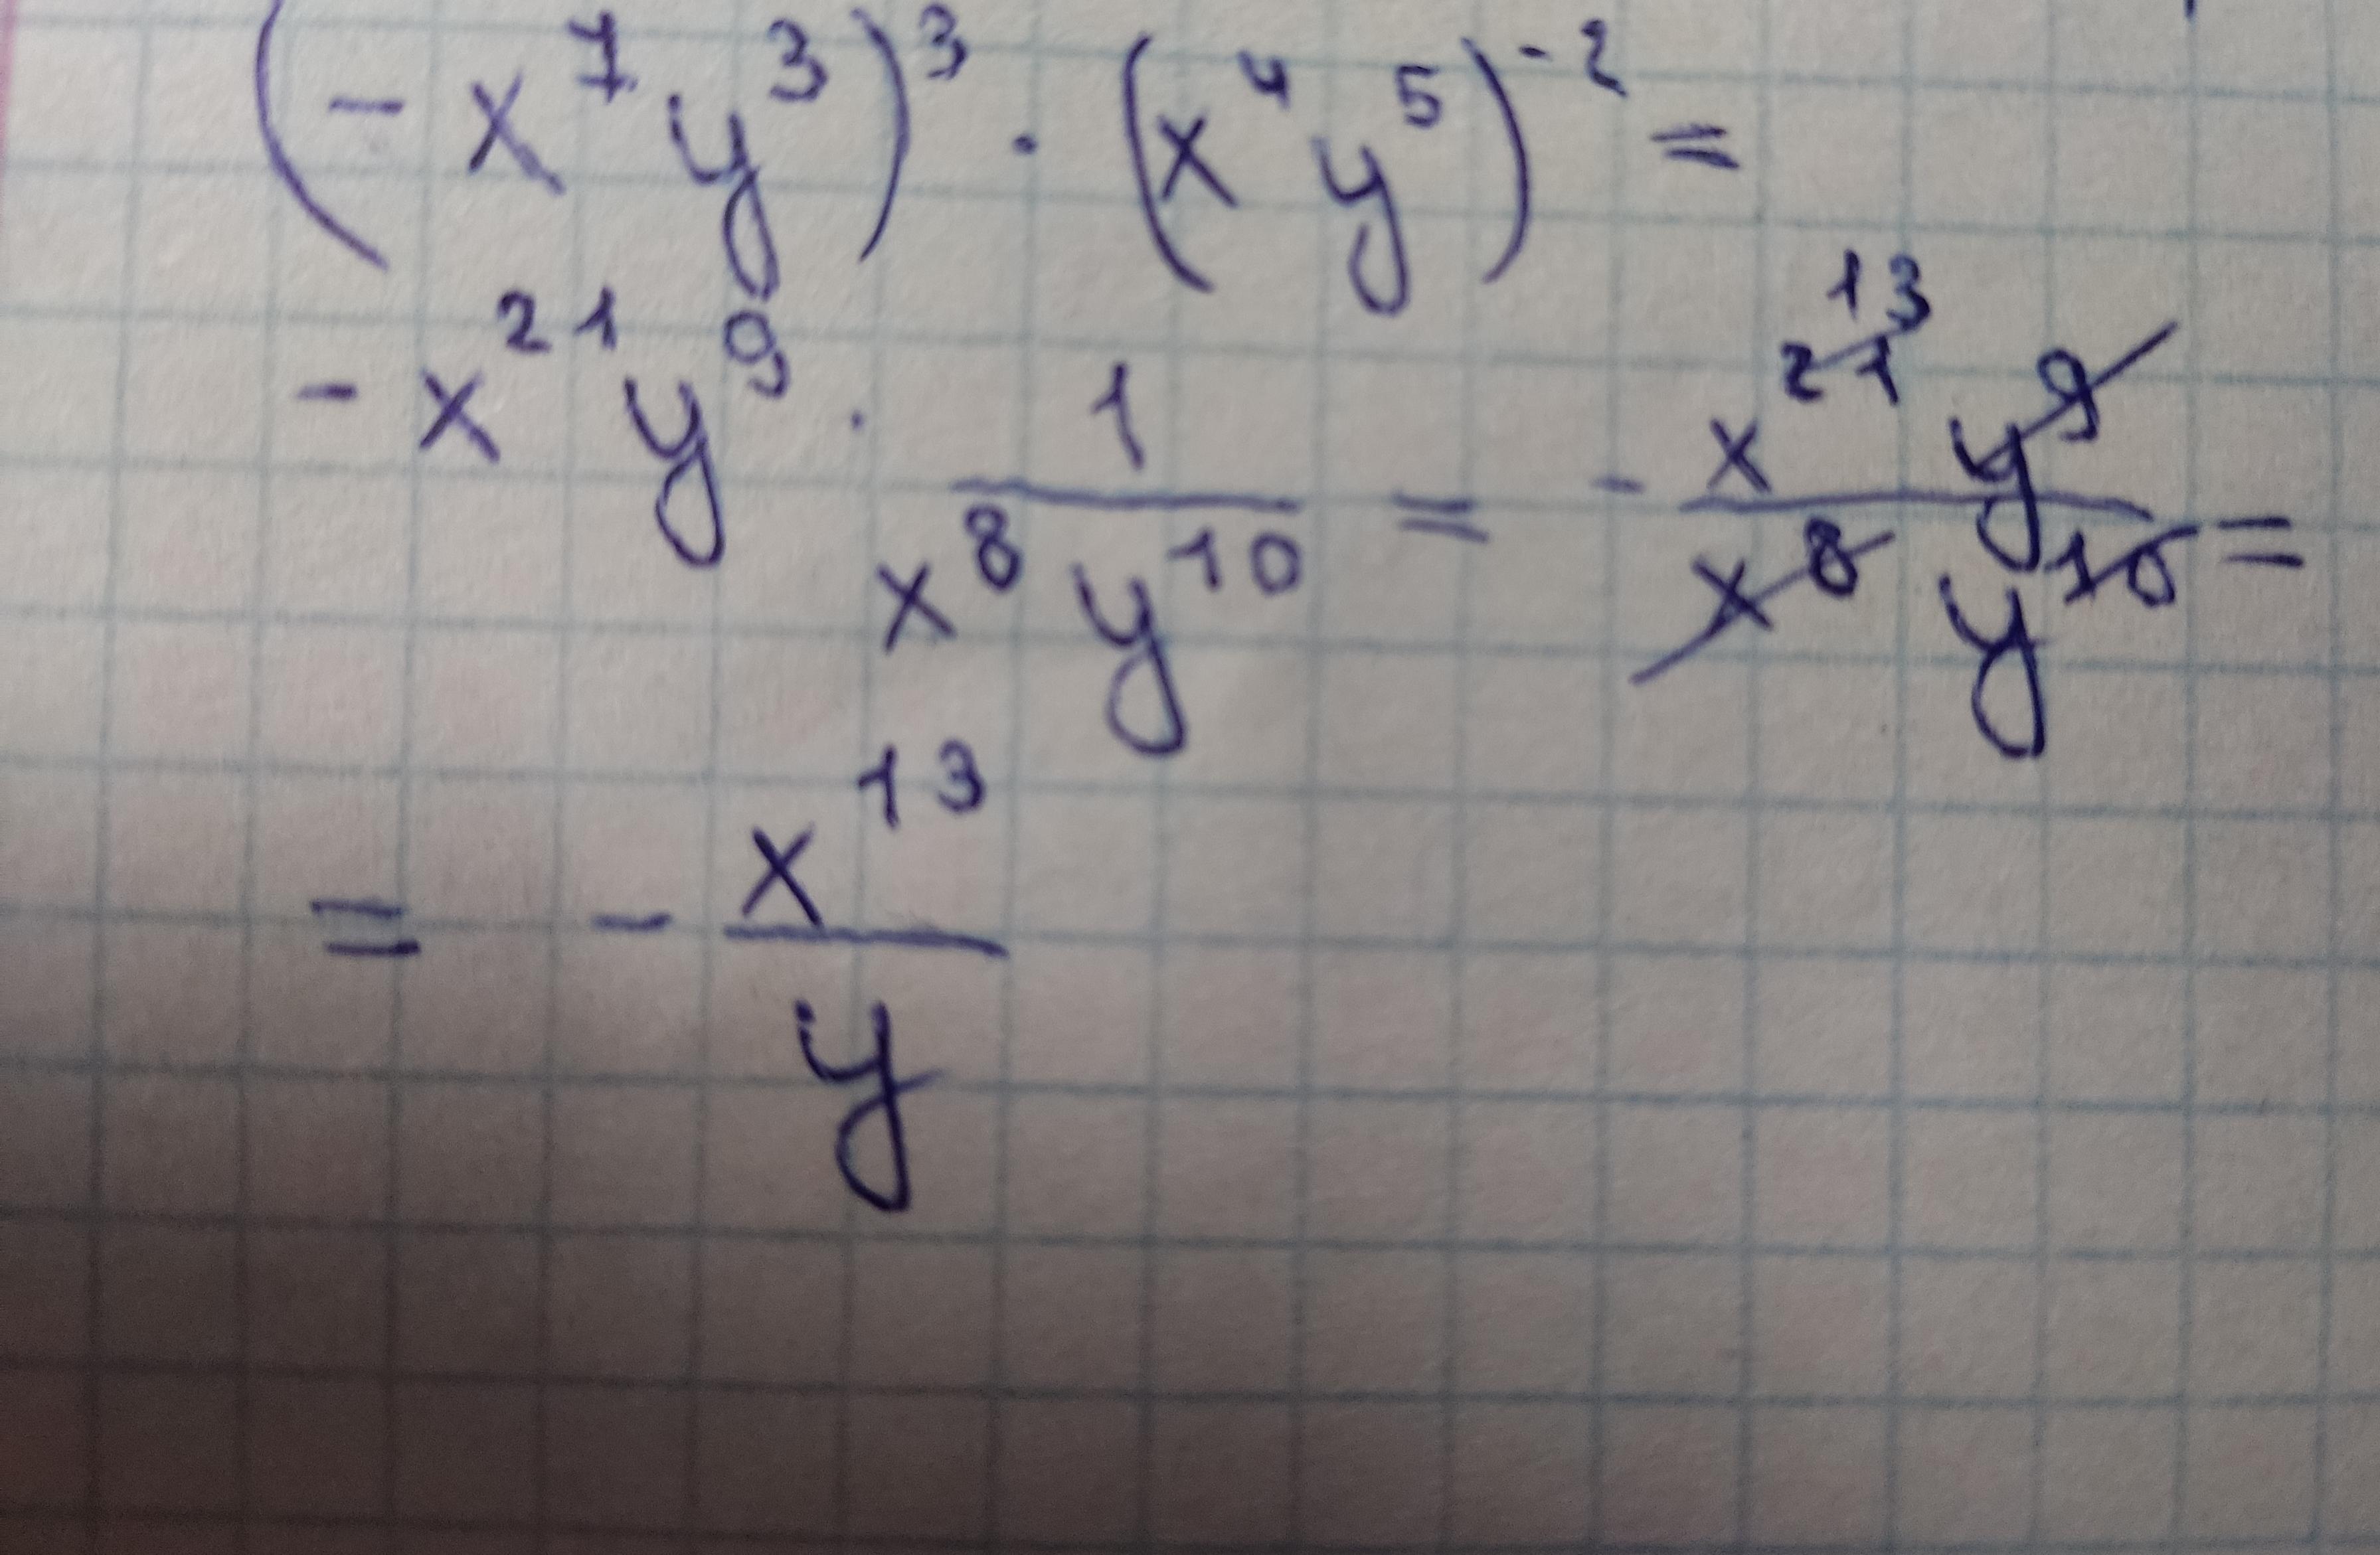 (-x⁷y³)³ · (x⁴y⁵)⁻² =
-x²¹y⁹ · 1/(x⁸y¹⁰) = - (x²¹ ¹³ y⁹)/(x⁸y¹⁰) =
= - x¹³/y